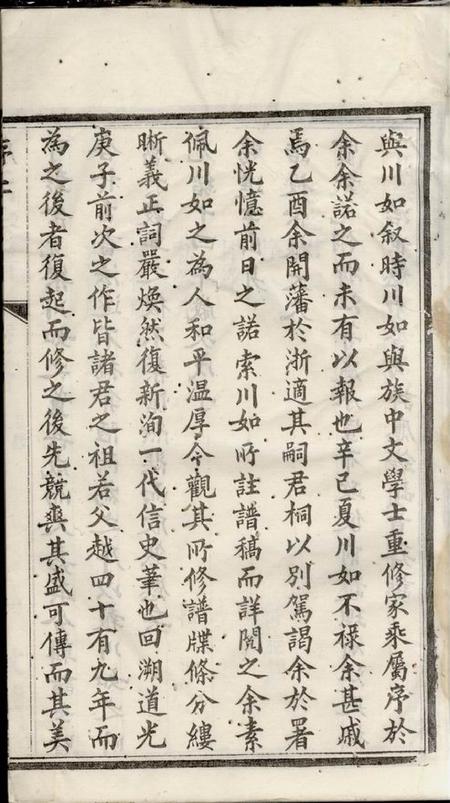 與川如敘時川如與族中文學士重修家乘屬序於
余余諾之而未有以報也辛巳夏川如不祿余甚戚
焉乙酉余開藩於浙適其嗣君桐以別駕謁余於署
余恍憶前日之諾索川如所註譜稿而詳閱之余素
佩川如之為人和平温厚今觀其所修譜牒條分縷
晰義正詞嚴煥然復新洵一代信史華也回溯道光
庚子前次之作皆諸君之祖若父越四十有九年而
為之後者復起而修之後先競爽其盛可傳而其美